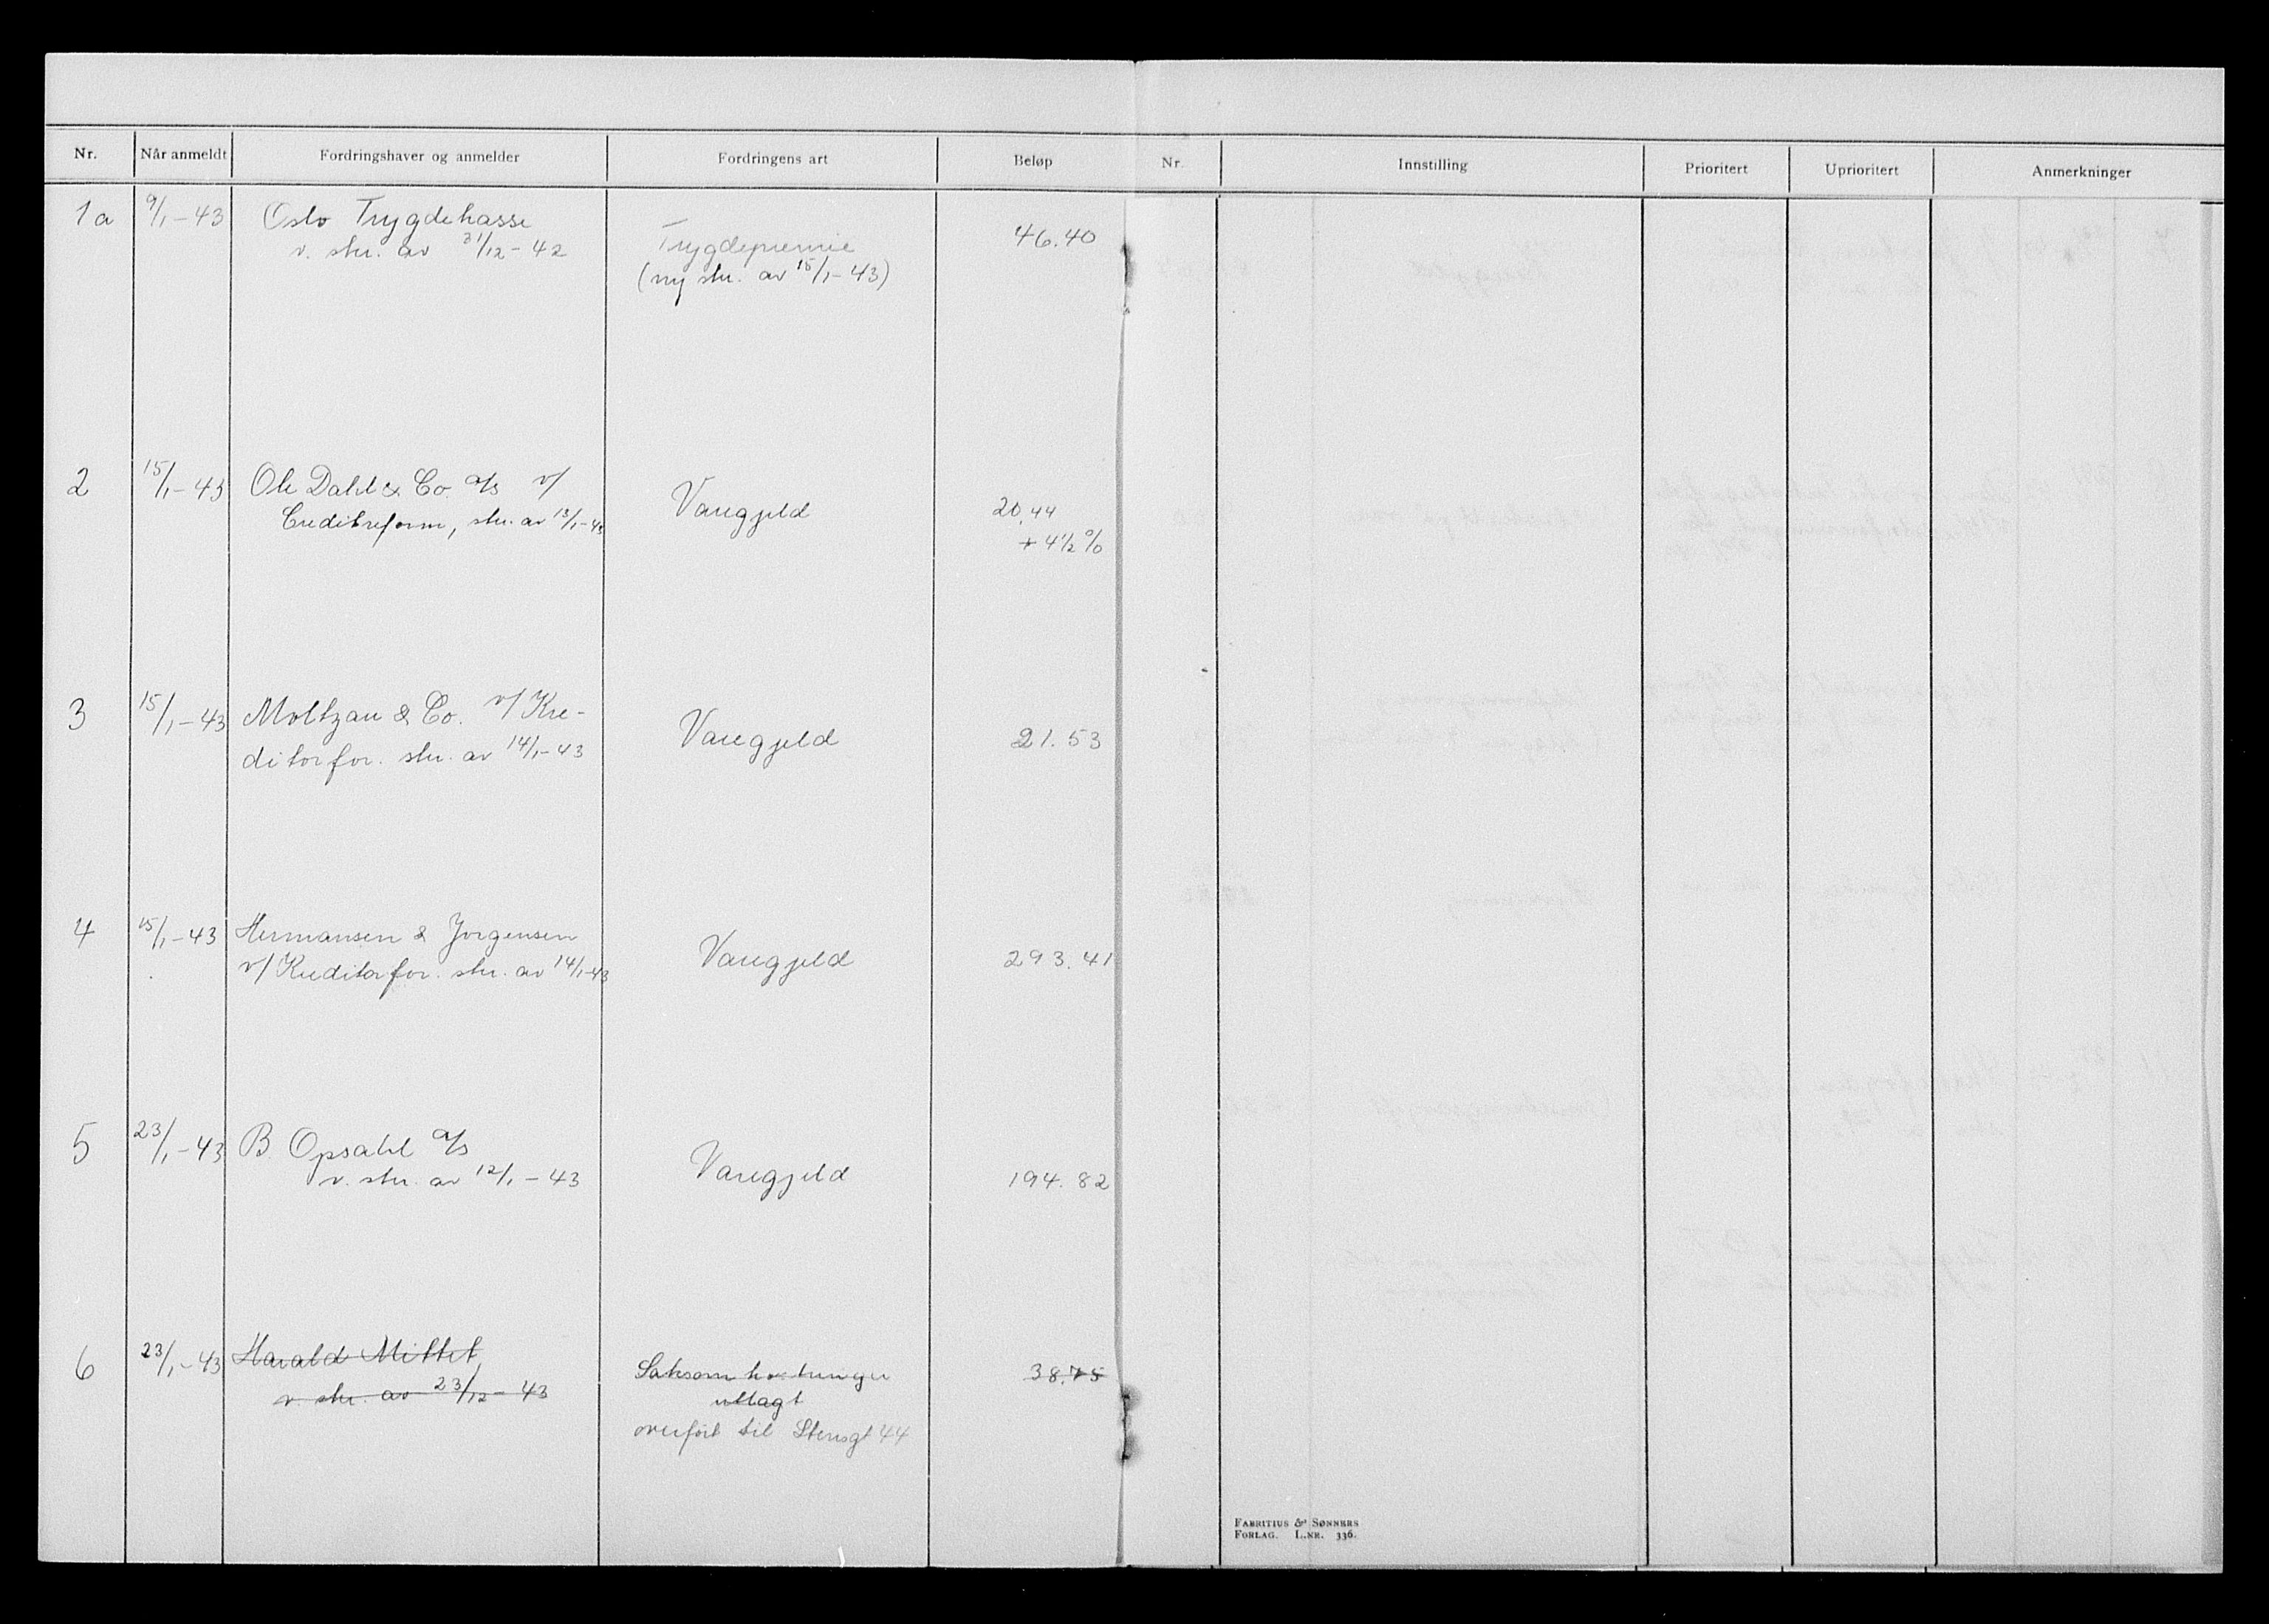 Nr. Når anmeldt Fordringshaver og anmelder Fordringens art Beløp Nr. Innstilling Prioritert Uprioritert Anmerkninger
1a 9/1-43 Oslo Trygdekasse
v. skr. av 31/12-42
Trygdepremie
(ny skr. av 15/1-43)
46.40
2 15/1-43 Ole Dahl & Co. a/s v/
Creditreform, skr. av 13/1-43
Varegjeld
20.44
+ 4 1/2 %
3 15/1-43 Moltzau & Co. v/ Kre-
ditorfor. skr. av 14/1-43
Varegjeld
21.53
4 15/1-43 Hermansen & Jorgensen
v/ Kreditorfor. skr. av 14/1-43
Varegjeld
293.41
5 23/1-43 B. Opsahl a/s
v. skr. av 12/1-43
Varegjeld
194.82
6 23/1-43 Harald Mittet
v. skr. av 23/12-43
utlagt
overført til Stensgt 44
38.75
FABRITIUS & SØNNERS
FORLAG. L.NR. 336.